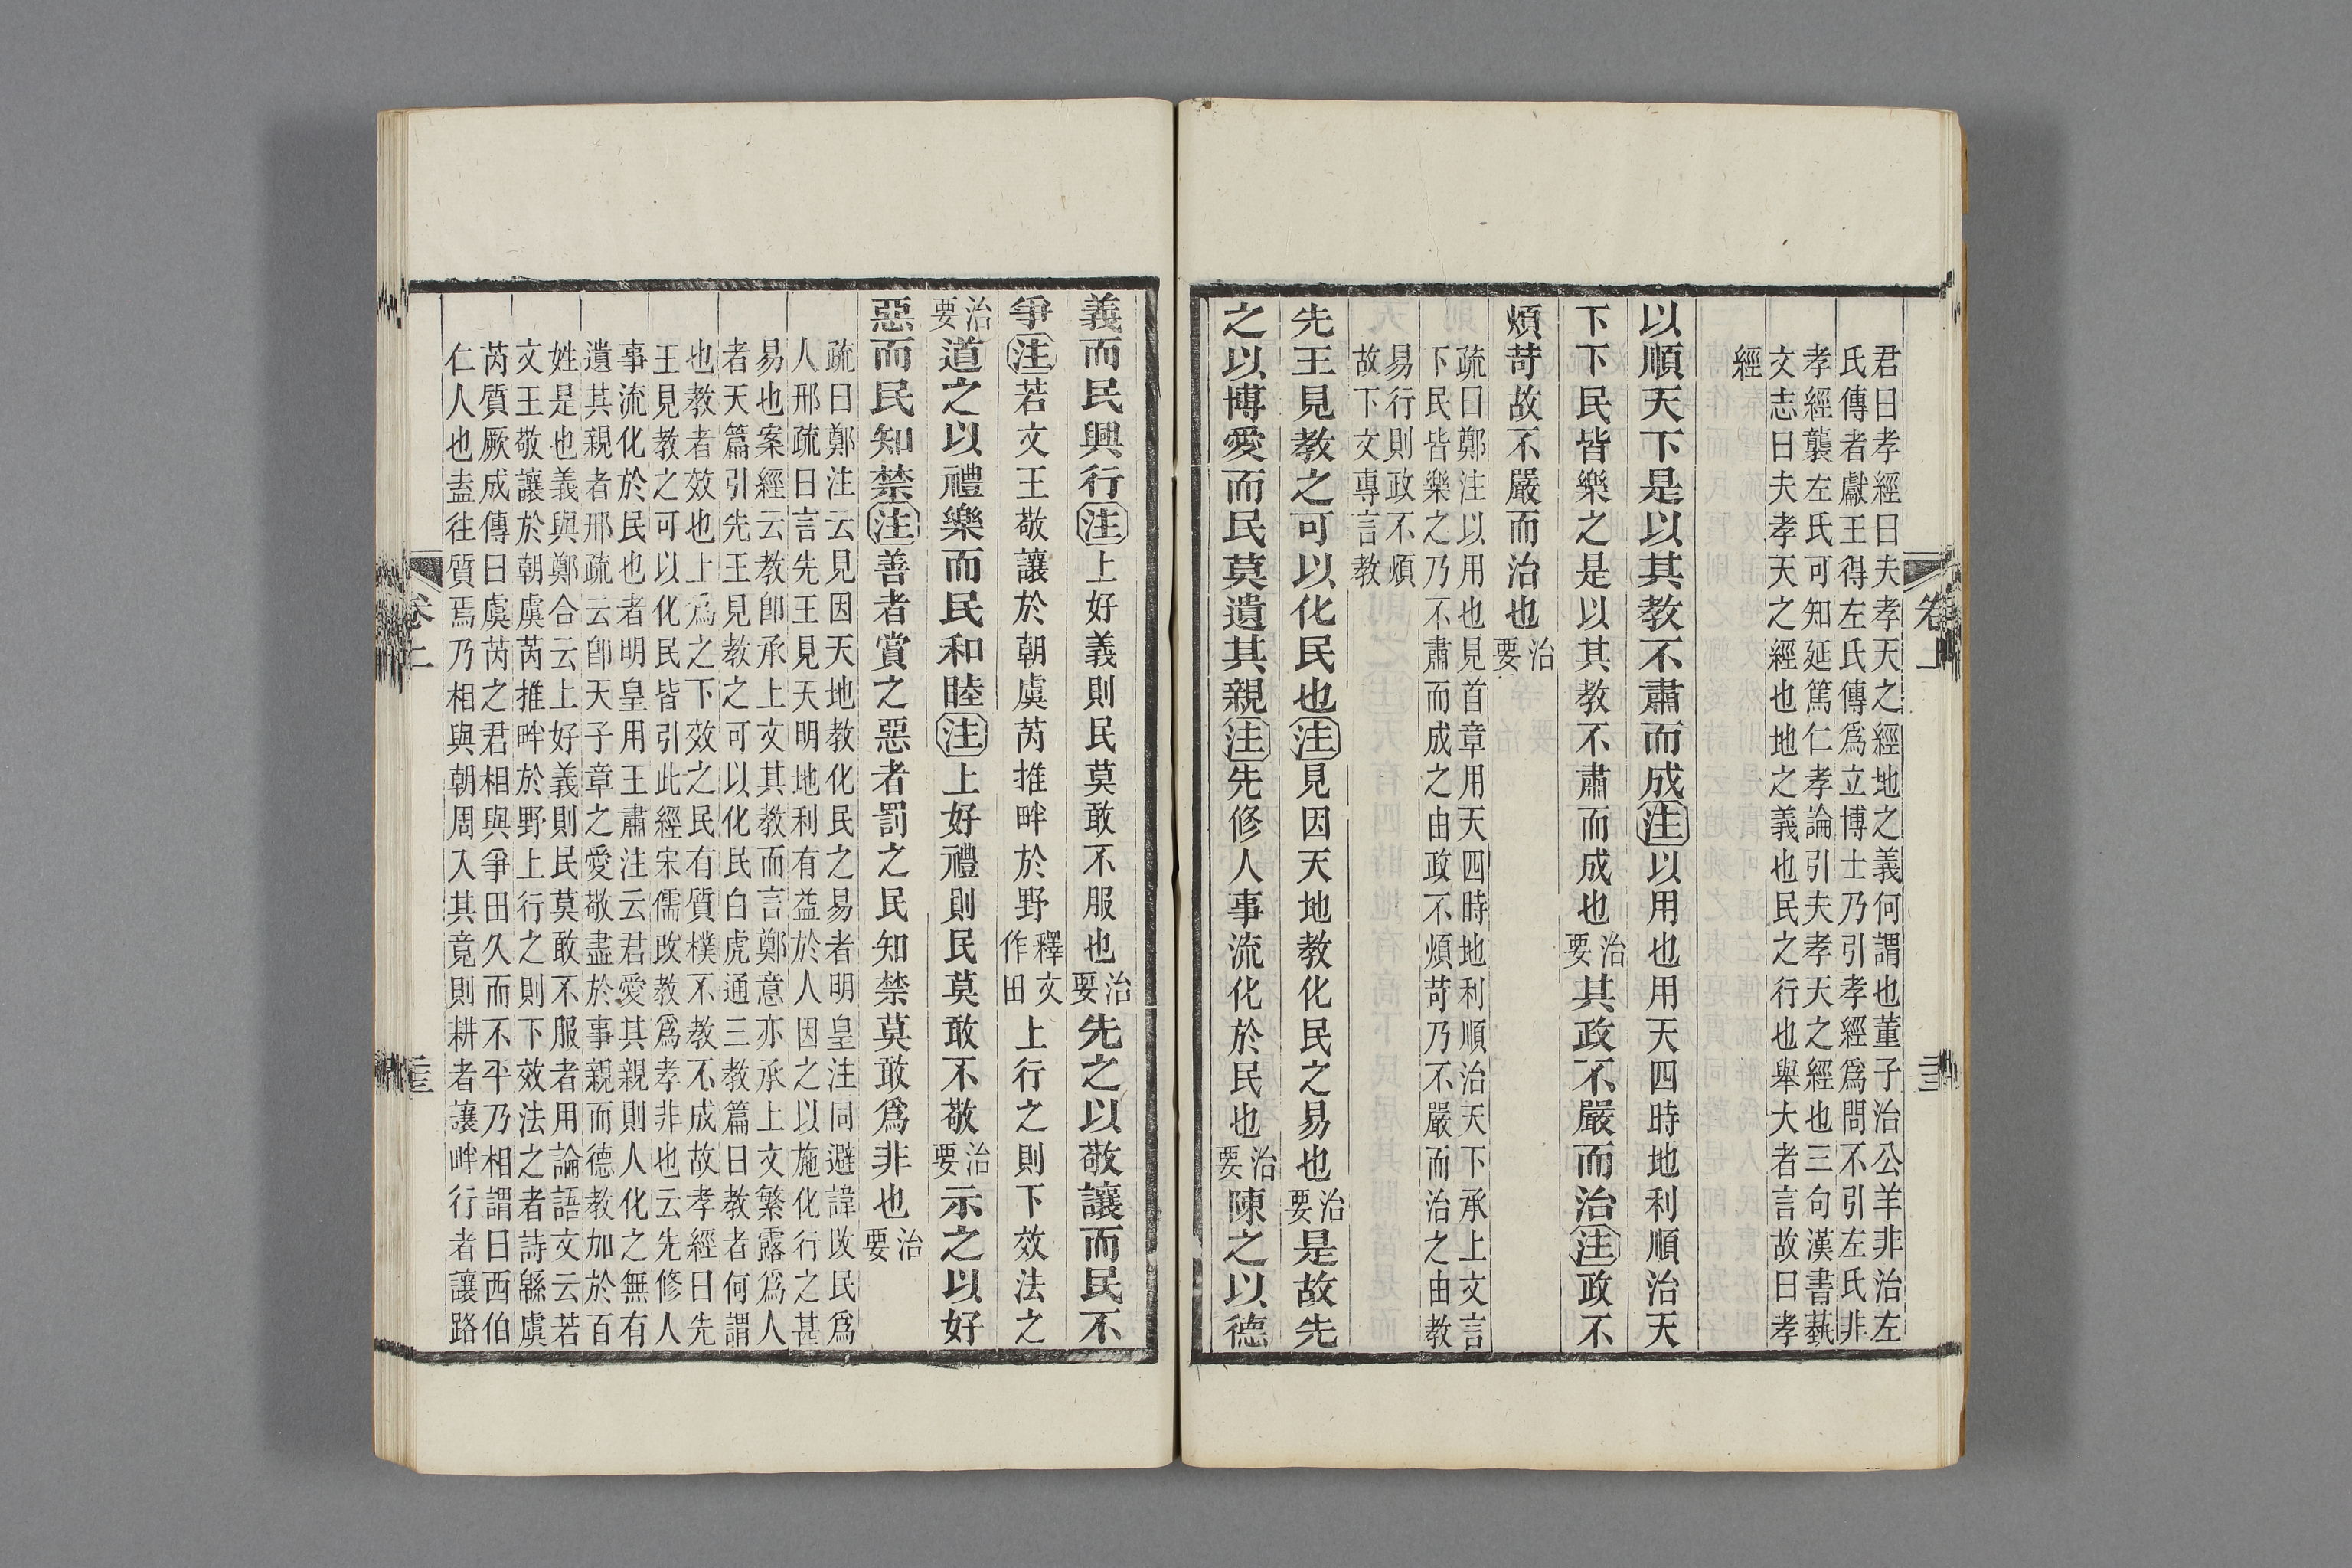 君曰孝經曰夫孝天之經地之義何謂也董子治公羊非治左
氏傳者獻王得左氏傳爲立博士乃引孝經爲問不引左氏非
孝經襲左氏可知延篤仁孝論引夫孝天之經也三句漢書藝
文志曰夫孝天之經也地之義也民之行也舉大者言故曰孝
經
以順天下是以其教不肅而成注以用也用天四時地利順治天
下下民皆樂之是以其教不肅而成也治要其政不嚴而治注政不
煩苛故不嚴而治也治要
疏曰鄭注以用也見首章用天四時地利順治天下承上文言
下民皆樂之乃不肅而成之由政不煩苛乃不嚴而治之由教
易行則政不煩
故下文專言教
先王見教之可以化民也注見因天地教化民之易也治要是故先
之以博愛而民莫遺其親注先修人事流化於民也治要陳之以德
義而民興行注上好義則民莫敢不服也治要先之以敬讓而民不
爭注若文王敬讓於朝虞芮推畔於野釋文作田上行之則下效法之
治要道之以禮樂而民和睦注上好禮則民莫敢不敬治要示之以好
惡而民知禁注善者賞之惡者罰之民知禁莫敢爲非也治要
疏曰鄭注云見因天地教化民之易者明皇注同避諱改民爲
人邢疏曰言先王見天明地利有益於人因之以施化行之甚
易也案經云教卽承上文其教而言鄭意亦承上文繁露爲人
者天篇引先王見教之可以化民白虎通三教篇曰教者何謂
也教者效也上爲之下效之民有質樸不教不成故孝經曰先
王見教之可以化民皆引此經宋儒政教爲孝非也云先修人
事流化於民也者明皇用王肅注云君愛其親則人化之無有
遺其親者邢疏云卽天子章之愛敬盡於事親而德教加於百
姓是也義與鄭合云上好義則民莫敢不服者用論語文云若
文王敬讓於朝虞芮推畔於野上行之則下效法之者詩緜虞
芮質厥成傳曰虞芮之君相與爭田久而不平乃相謂曰西伯
仁人也盍往質焉乃相與朝周入其竟則耕者讓畔行者讓路
卷上
卷上